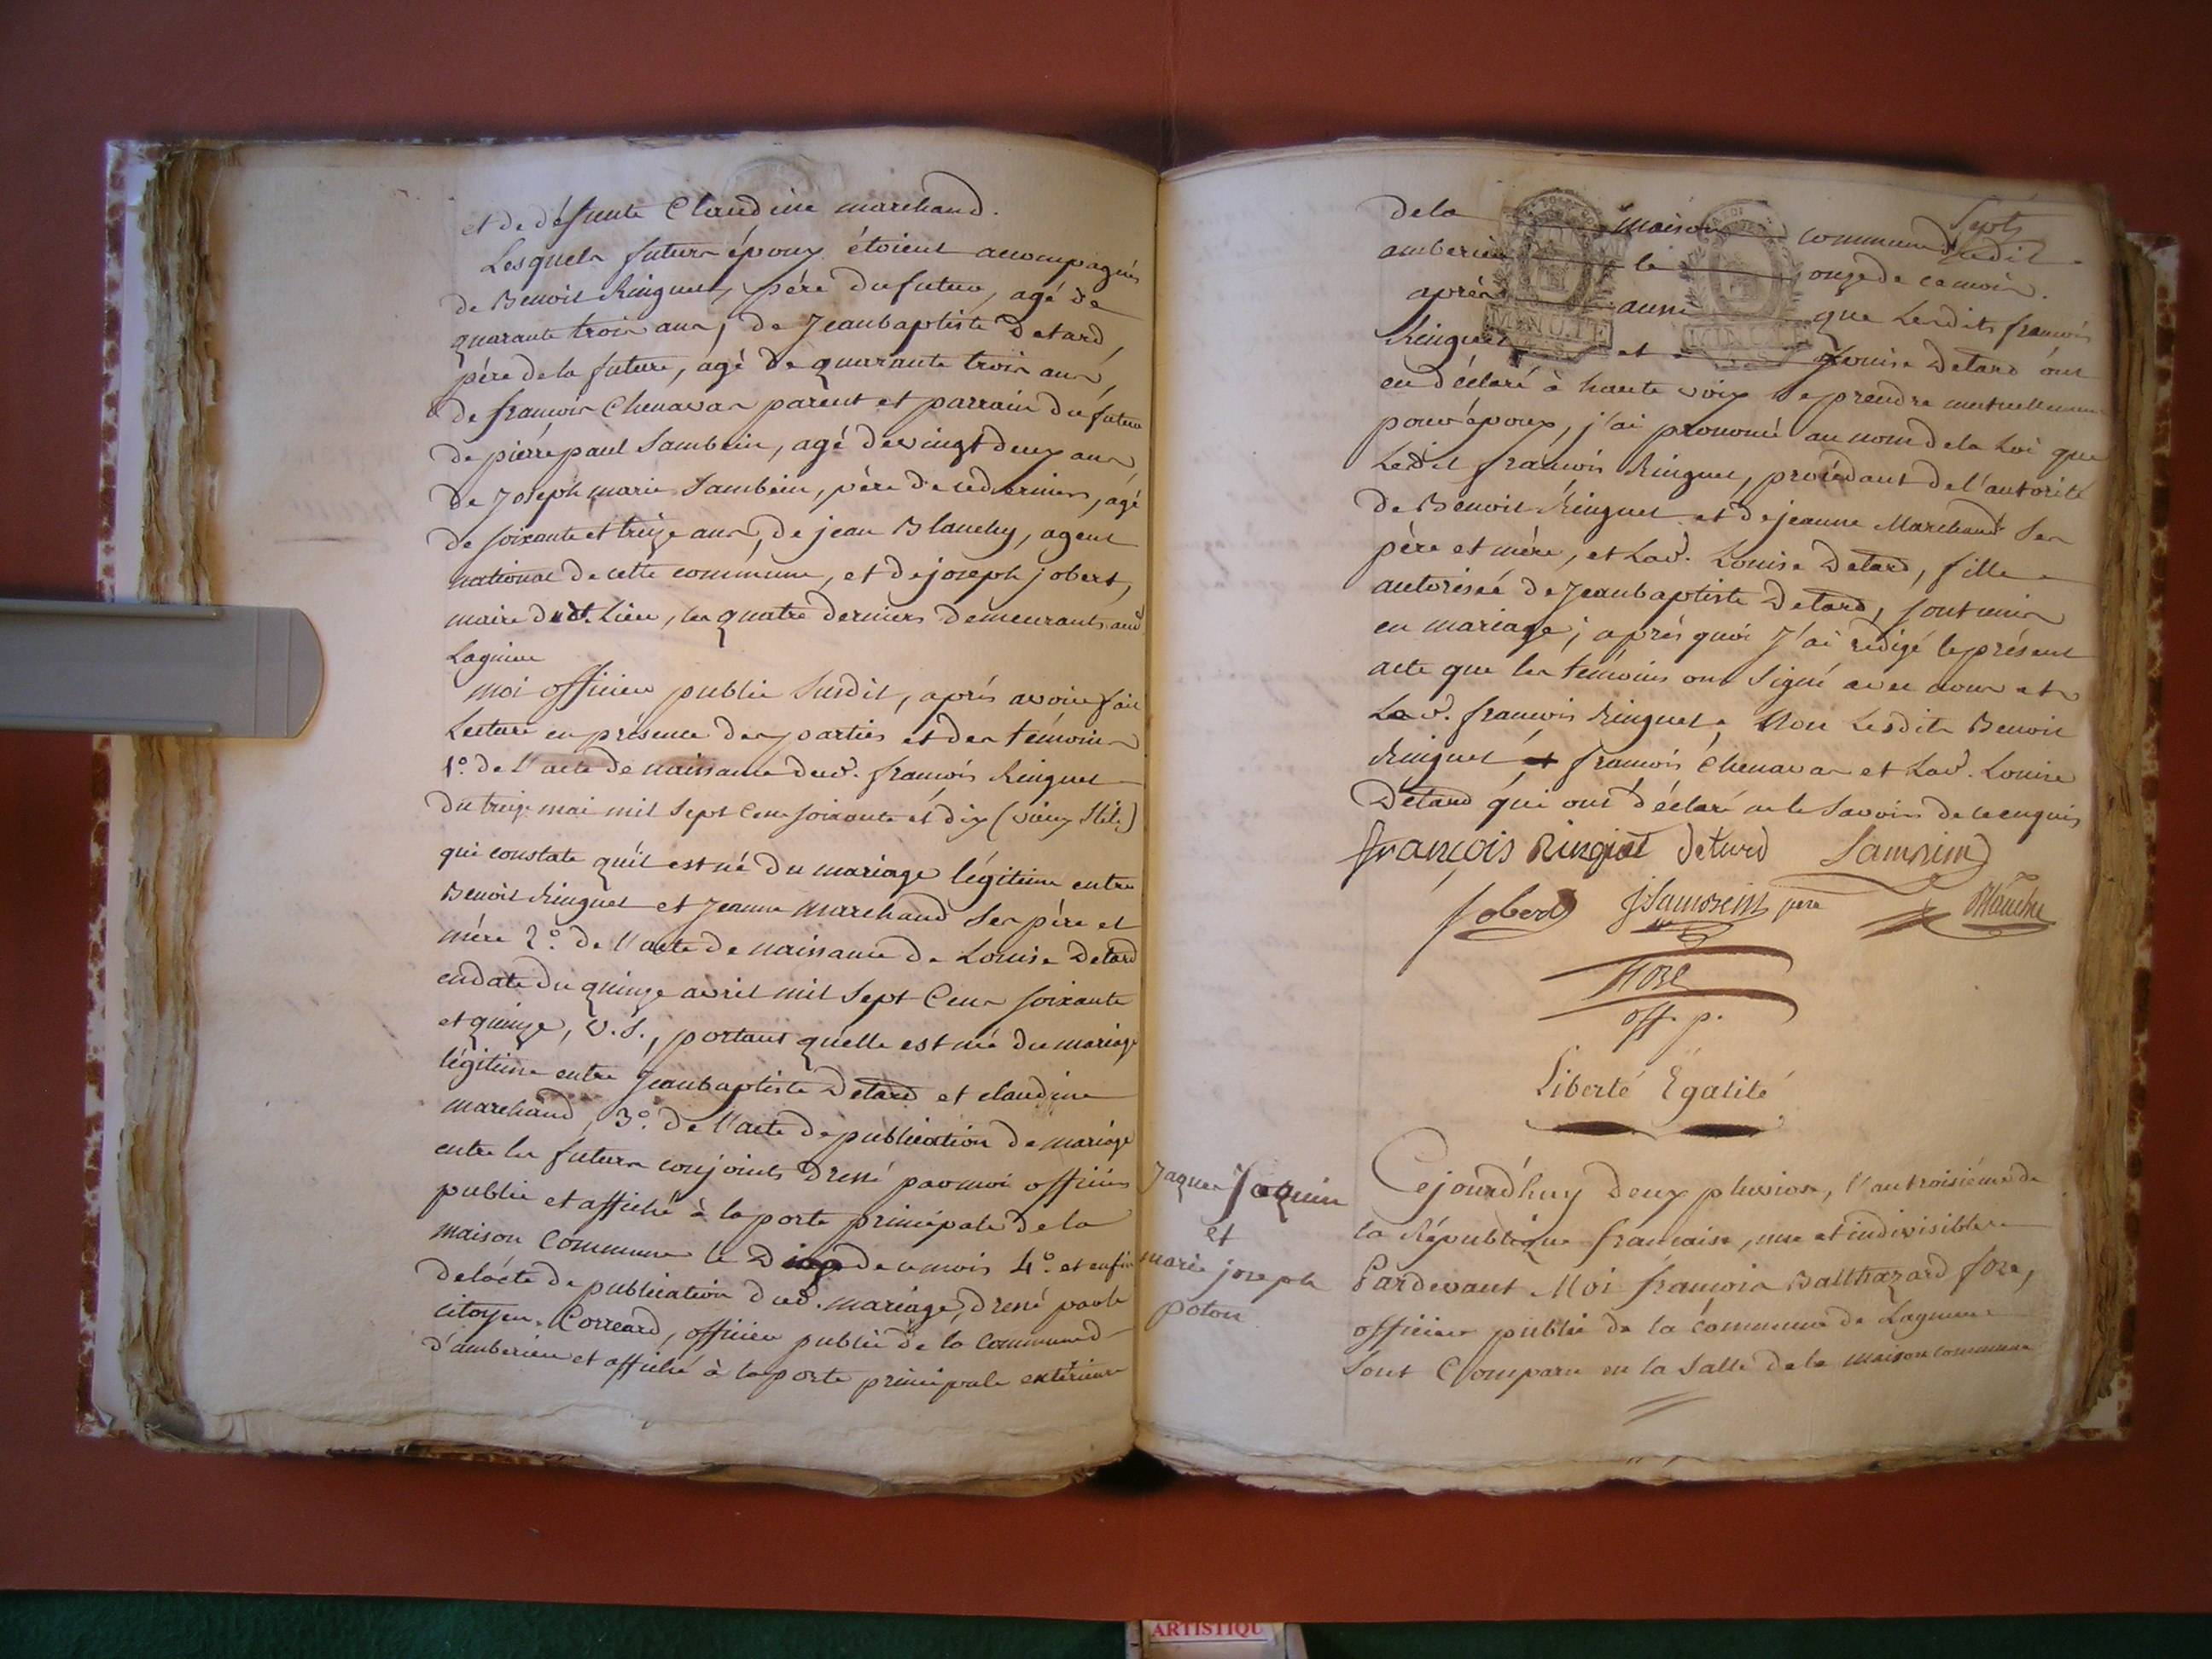 et de défunte Claudine marchand.
Lesquels futurs époux étoient accompagnés
de Benoit Ringuet, père du futur, agé de
quarante trois ans, de Jeanbaptiste Detard,
père de la future, agé de quarante trois ans,
de françois Chenavas parent et parrain du futur
de pierre paul Sambein, agé de vingt deux ans
de Joseph marie Sambein, père de ce dernier, agé
de soixante et treize ans, de jean Blanchy, agent
national de cette commune, et de joseph jobert,
maire dud. lieu, les quatre derniers demeurants aud
Lagnieu
Moi officier public susdit, après avoir fait
Lecture en présence des parties et des témoins
1º. de l'acte de naissance dud. françois Ringuet
du treize mai mil sept cent soixante et dix (vieux stile)
qui constate qu'il est né du mariage légitime entre
Benoit Ringuet et Jeanne Marchand ses père et
mére 2º. de l'acte de naissance de Louise Detard
en date du quinze avril mil sept Cent soixante
et quinze, V.S., portant quelle est née du mariage
légitime entre Jeanbaptiste Detard et claudine
marchand, 3º. de l'acte de publication de mariage
entre les futurs conjoints dressé par moi officier
public et affiché à la porte principale de la
maison Commune le de ce mois 4º. et enfin
de l'acte de publication dud. mariage, dressé par le
citoyen Correard, officier public de la Commune d
d'amberieu et affiché à la porte principale extérieure
Sept
de la maison commune dudit
amberieu le onze de ce mois.
après aussi que Lesdits françois
Ringuet et Louise Detard ont
eu déclaré à haute voix se prendre mutuellement
pour époux, j'ai prononcé au nom de la Loi que
Ledit françois Ringuet, procédant de l'autorité
de Benoit Ringuet et de jeanne Marchand ses
père et mère, et Lad. Louise Detard, fille
autorisée de Jeanbaptiste Detard, sont unis
en mariage; après quoi J'ai redigé le présent
acte que les témoins ont Signé avec nous et
Led. françois Ringuet, Non Lesdits Benoit
Ringuet et françois Chenavas et Lad. Louise
Detard qui ont déclaré ne le savoir de ce enquis
françois Ringuet detard Sambein
Jobert J Sambein père Blanchy
fore
off. p.
Liberté Egalité
Jaques Jaquin
et
marie joseph
poton
Cejourd'huy Deux pluviose, l'an troisiéme de
la République francaise, une et indivisible
Pardevant Moi françois Balthazard fore,
officier public de la commune de Lagnieu
Sont Comparu en la Salle de la maison commune
MINUTE
MINUTE
ARTISTIQU